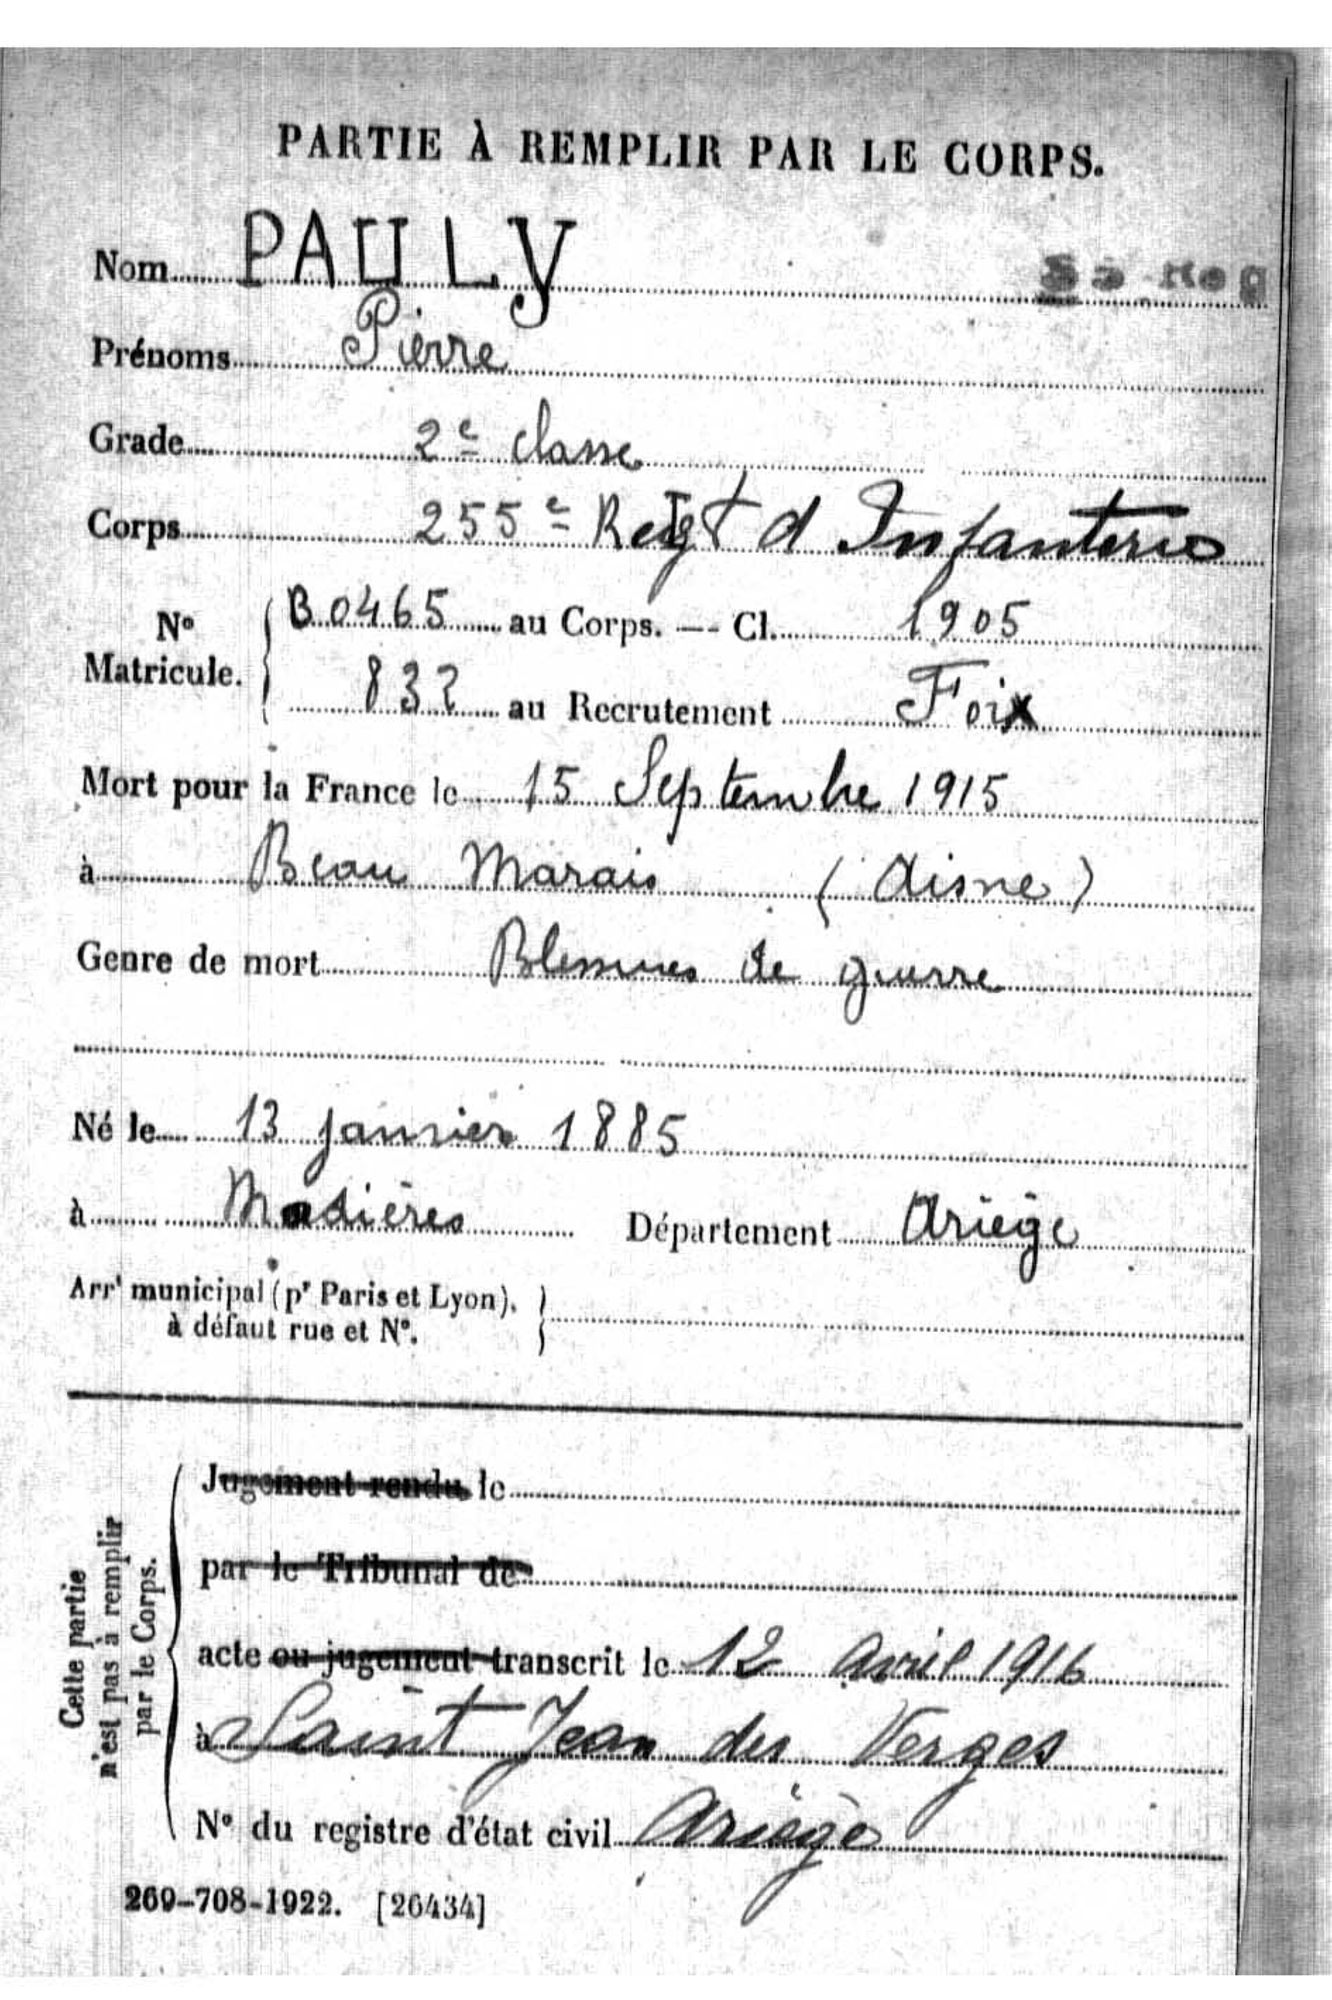 PARTIE À REMPLIR PAR LE CORPS.
Nom PAULY
Prénoms Pierre
Grade 2e classe
Corps 255e Regt d Infanterie
No Matricule. { B0465 au Corps. — Cl. 1905
832 au Recrutement Foix
Mort pour la France le 15 Septembre 1915
à Beau Marais (Aisne)
Genre de mort Blessures de guerre
Né le 13 janvier 1885
à Madières Département Ariège
Arrt municipal (pr Paris et Lyon), }
à défaut rue et No.
Cette partie
n'est pas à remplir
par le Corps.
Jugement rendu le
par le Tribunal de
acte ou jugement transcrit le 12 avril 1916
à Saint Jean des Verges
No du registre d'état civil Ariège
269-708-1922. [26434]